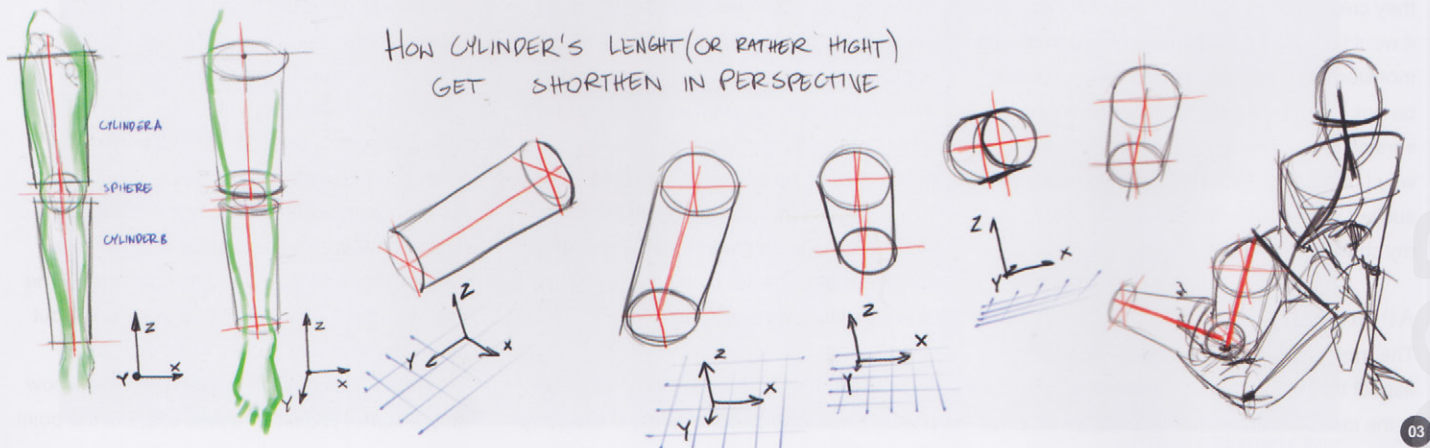 HOW CYLINDER'S LENGHT (OR RATHER HIGHT)
GET SHORTHEN IN PERSPECTIVE
CYLINDER A
SPHERE
CYLINDER B
Z
Y X
Z
X
Y
Z
Y X
Z
X
Y
Z
X
Y
Z
X
Y
03